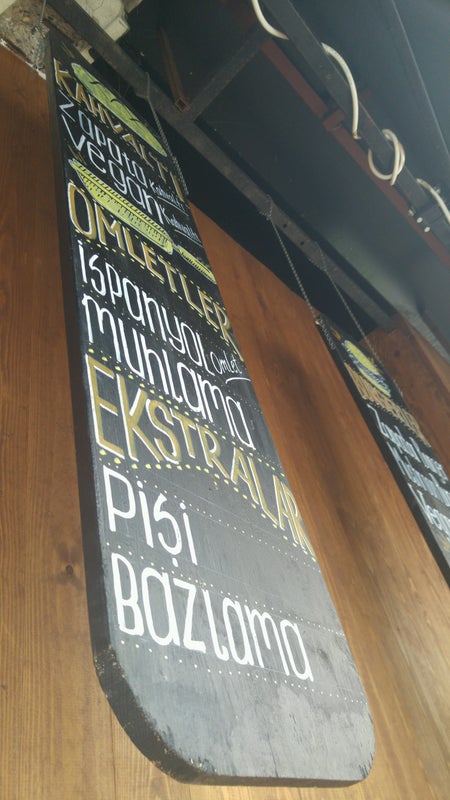 KAHVALTI
Zapata Kahvaltı
Vegan Kahvaltı
OMLETLER
İspanyol Omlet
Muhlama
EKSTRALAR
Pişi
Bazlama